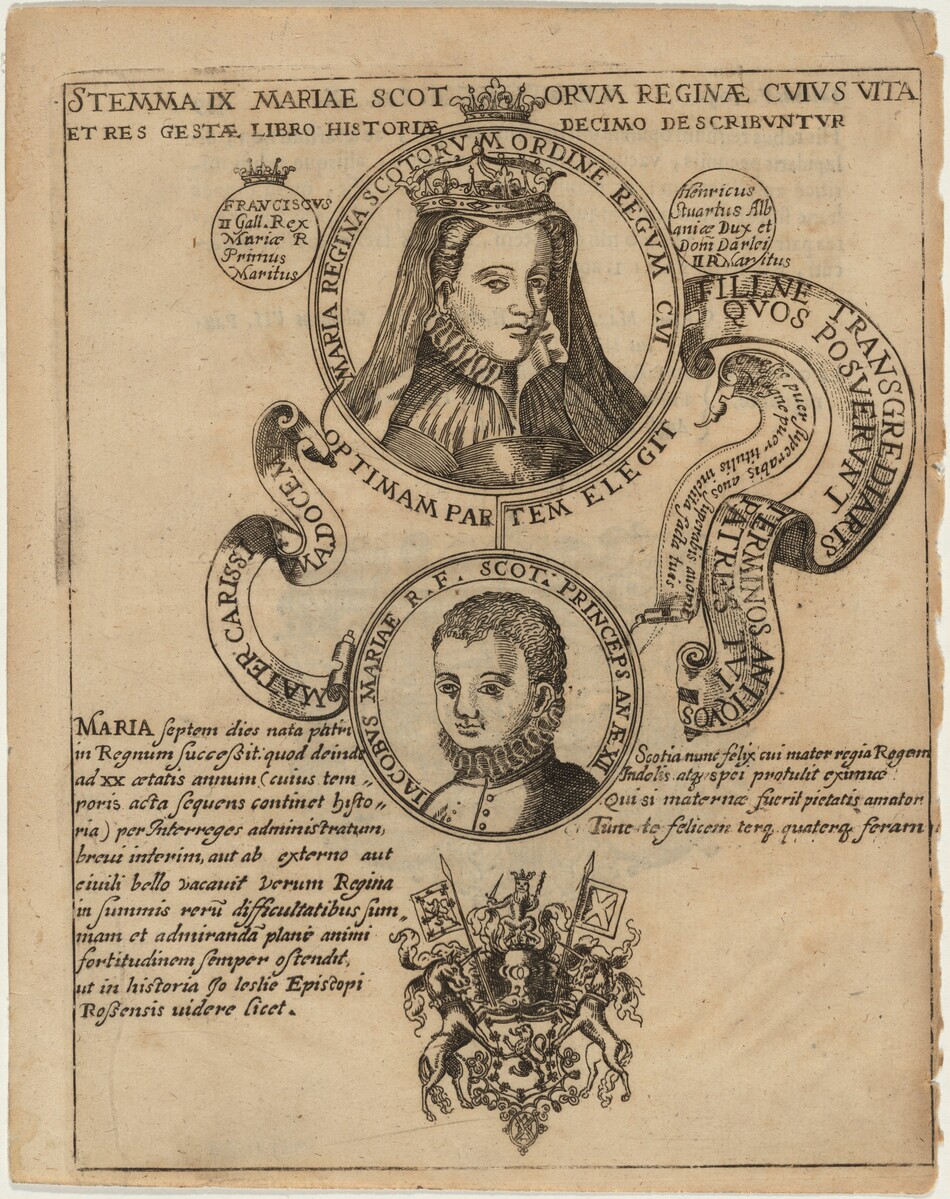 STEMMA IX MARIAE SCOTORVM REGINÆ CVIVS VITA
ET RES GESTÆ LIBRO HISTORIÆ DECIMO DESCRIBVNTVR
FRANCISCVS
II Gall. Rex
Mariæ R
Primus
Maritus
MARIA REGINA SCOTORVM ORDINE REGVM CVI
OPTIMAM PARTEM ELEGIT
Henricus
Stuartus Alb
aniæ Dux et
Doñi Darlei
II R Maritus
FILI NE TRANSGREDIARIS
TERMINOS ANTIQVOS
QVOS POSVERVNT
PATRES TVI
puer superabis auos superabis auorum
Magne puer titulis inclita facta tuis
MATER CARISSI
MA DOCEAT
IACOBVS MARIAE R. F. SCOT: PRINCEPS AN Æ XII
MARIA septem dies nata patri
in Regnum succeßit: quod deinde
ad XX ætatis annum (cuius tem=
poris acta sequens continet histo=
ria) per Interreges administratum,
breui interim, aut ab externo aut
ciuili bello vacauit Verum Regina
in summis rerū difficultatibus sum=
mam et admirandā planè animi
fortitudinem semper ostendit,
ut in historia Jo leslie Episcopi
Roßensis uidere licet.
Scotia nunc felix cui mater regia Regem
Indolis atq, spei protulit eximiæ
Qui si maternæ fuerit pietatis amator
Tunc te felicem terq, quaterq, feram